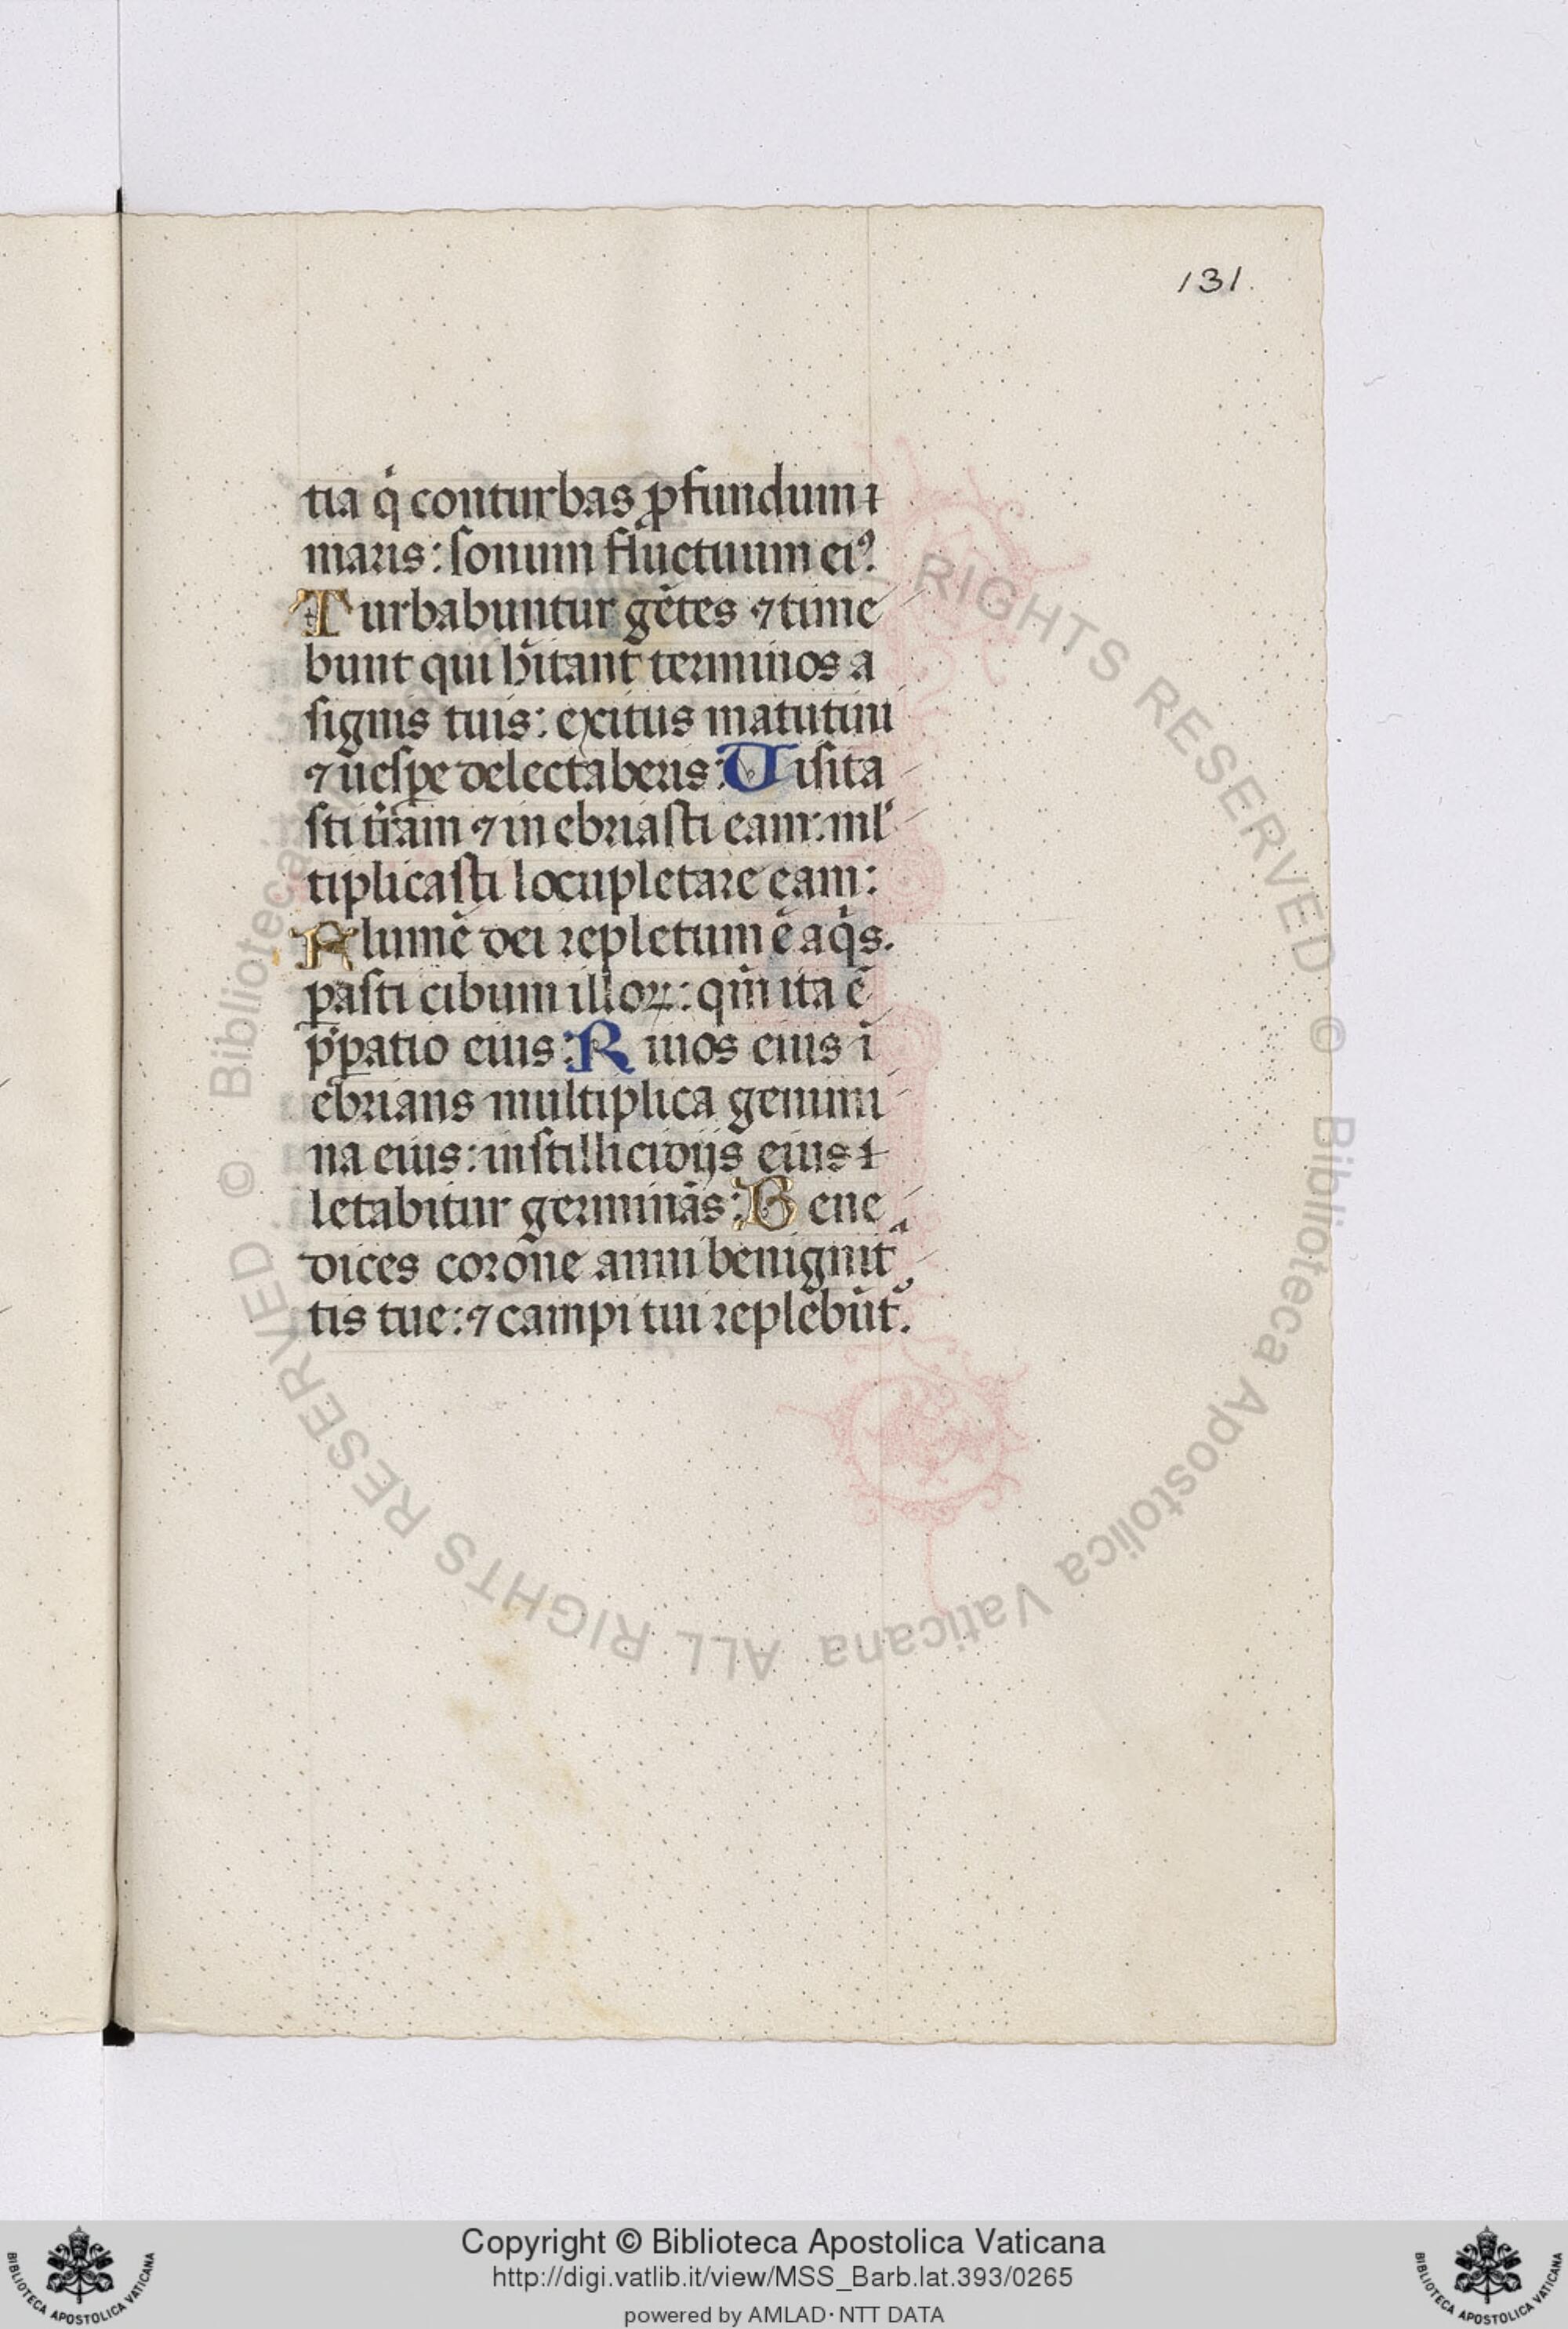 131.
tia qͥ conturbas ꝓfundum ı
maris: sonum fluctuum eiꝰ.
Turbabuntur gētes ⁊ time
bunt qui hītant terminos a
signis tuis: exitus matutini
⁊ uesꝑe delectaberis: Uisita
sti tr̄am ⁊ in ebriasti eam: ml̓
tiplicasti locupletare eam:
Flumē dei repletum ē aqͥs.
parasti cibum illoꝝ: qm̄ ita ē
p̄ꝑatio eius: Riuos eius ī
ebrians multiplica genimi
na eius: in stillicidijs eius ł
letabitur germinās: Bene
dices corone anni benignitᵃ
tis tue: ⁊ campi tui replebūt᷑.
© Biblioteca Apostolica Vaticana ALL RIGHTS RESERVED
Copyright © Biblioteca Apostolica Vaticana
http://digi.vatlib.it/view/MSS_Barb.lat.393/0265
powered by AMLAD·NTT DATA
BIBLIOTECA APOSTOLICA VATICANA
BIBLIOTECA APOSTOLICA VATICANA